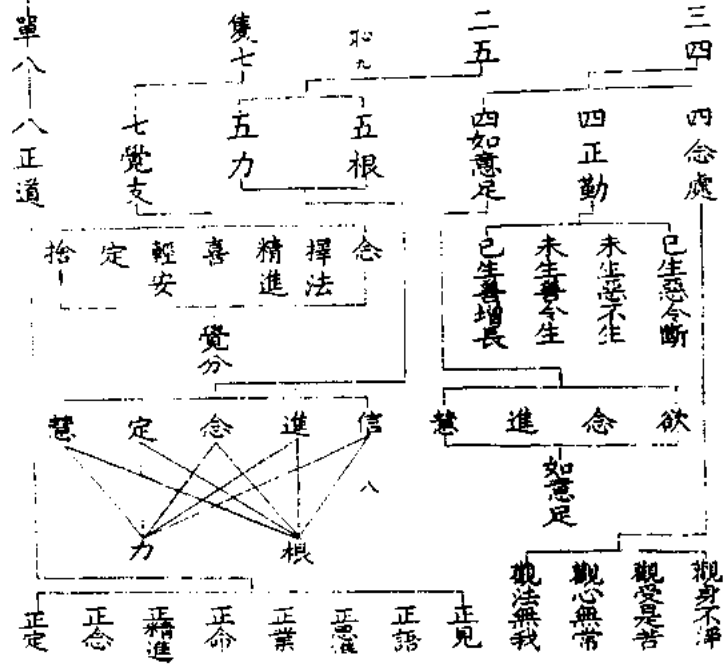 三四
二五
恥九
隻七
單八
四念處
四正勤
四如意足
五根
五力
七覺支
八正道
已生惡令斷
未生惡不生
未生善令生
已生善增長
念
擇法
精進
喜
輕安
定
捨
覺分
欲
念
進
慧
如意足
信
進
念
定
慧
八
根
力
觀身不淨
觀受是苦
觀心無常
觀法無我
正見
正語
正業
正命
正精進
正念
正定